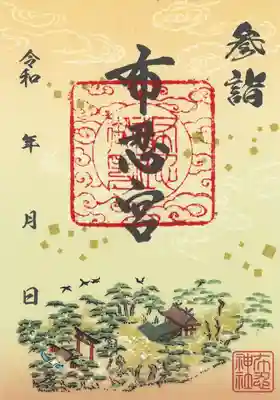 参詣
布忍宮
令和　年　月　日
布忍神社